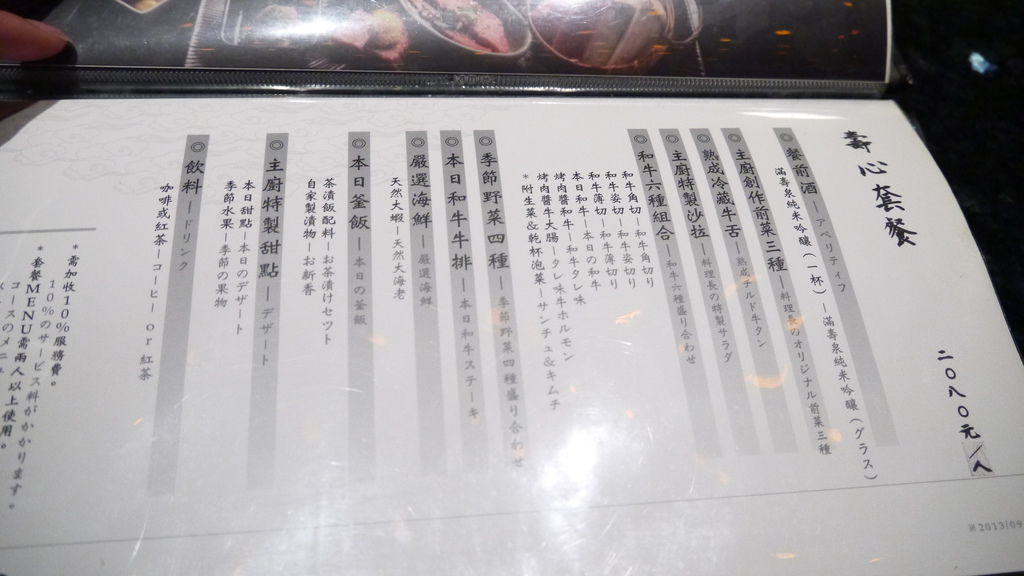 壽心套餐
二〇八〇元/人
◎餐前酒－アペリティフ
滿壽泉純米吟釀（一杯）－滿壽泉純米吟釀（グラス）
◎主廚創作前菜三種－料理長のオリジナル前菜三種
◎熟成冷藏牛舌－熟成チルド牛タン
◎主廚特製沙拉－料理長の特製サラダ
◎和牛六種組合－和牛六種盛り合わせ
和牛角切り－和牛角切り
和牛姿切－和牛姿切り
和牛薄切－和牛薄切り
本日和牛－本日の和牛
烤肉醬和牛－和牛タレ味
烤肉醬牛大腸－タレ味牛ホルモン
*附生菜&乾杯泡菜－サンチュ&キムチ
◎季節野菜四種－季節野菜四種盛り合わせ
◎本日和牛牛排－本日和牛ステーキ
◎嚴選海鮮－嚴選海鮮
天然大蝦－天然大海老
◎本日釜飯－本日の釜飯
茶漬飯配料－お茶漬けセット
自家製漬物－お新香
◎主廚特製甜點－デザート
本日甜點－本日のデザート
季節水果－季節の果物
◎飲料－ドリンク
咖啡或紅茶－コーヒー or 紅茶
*需加收10%服務費。
10%のサービス料がかかります。
*套餐MENU需兩人以上使用。
コースのメニュー
※2013/09